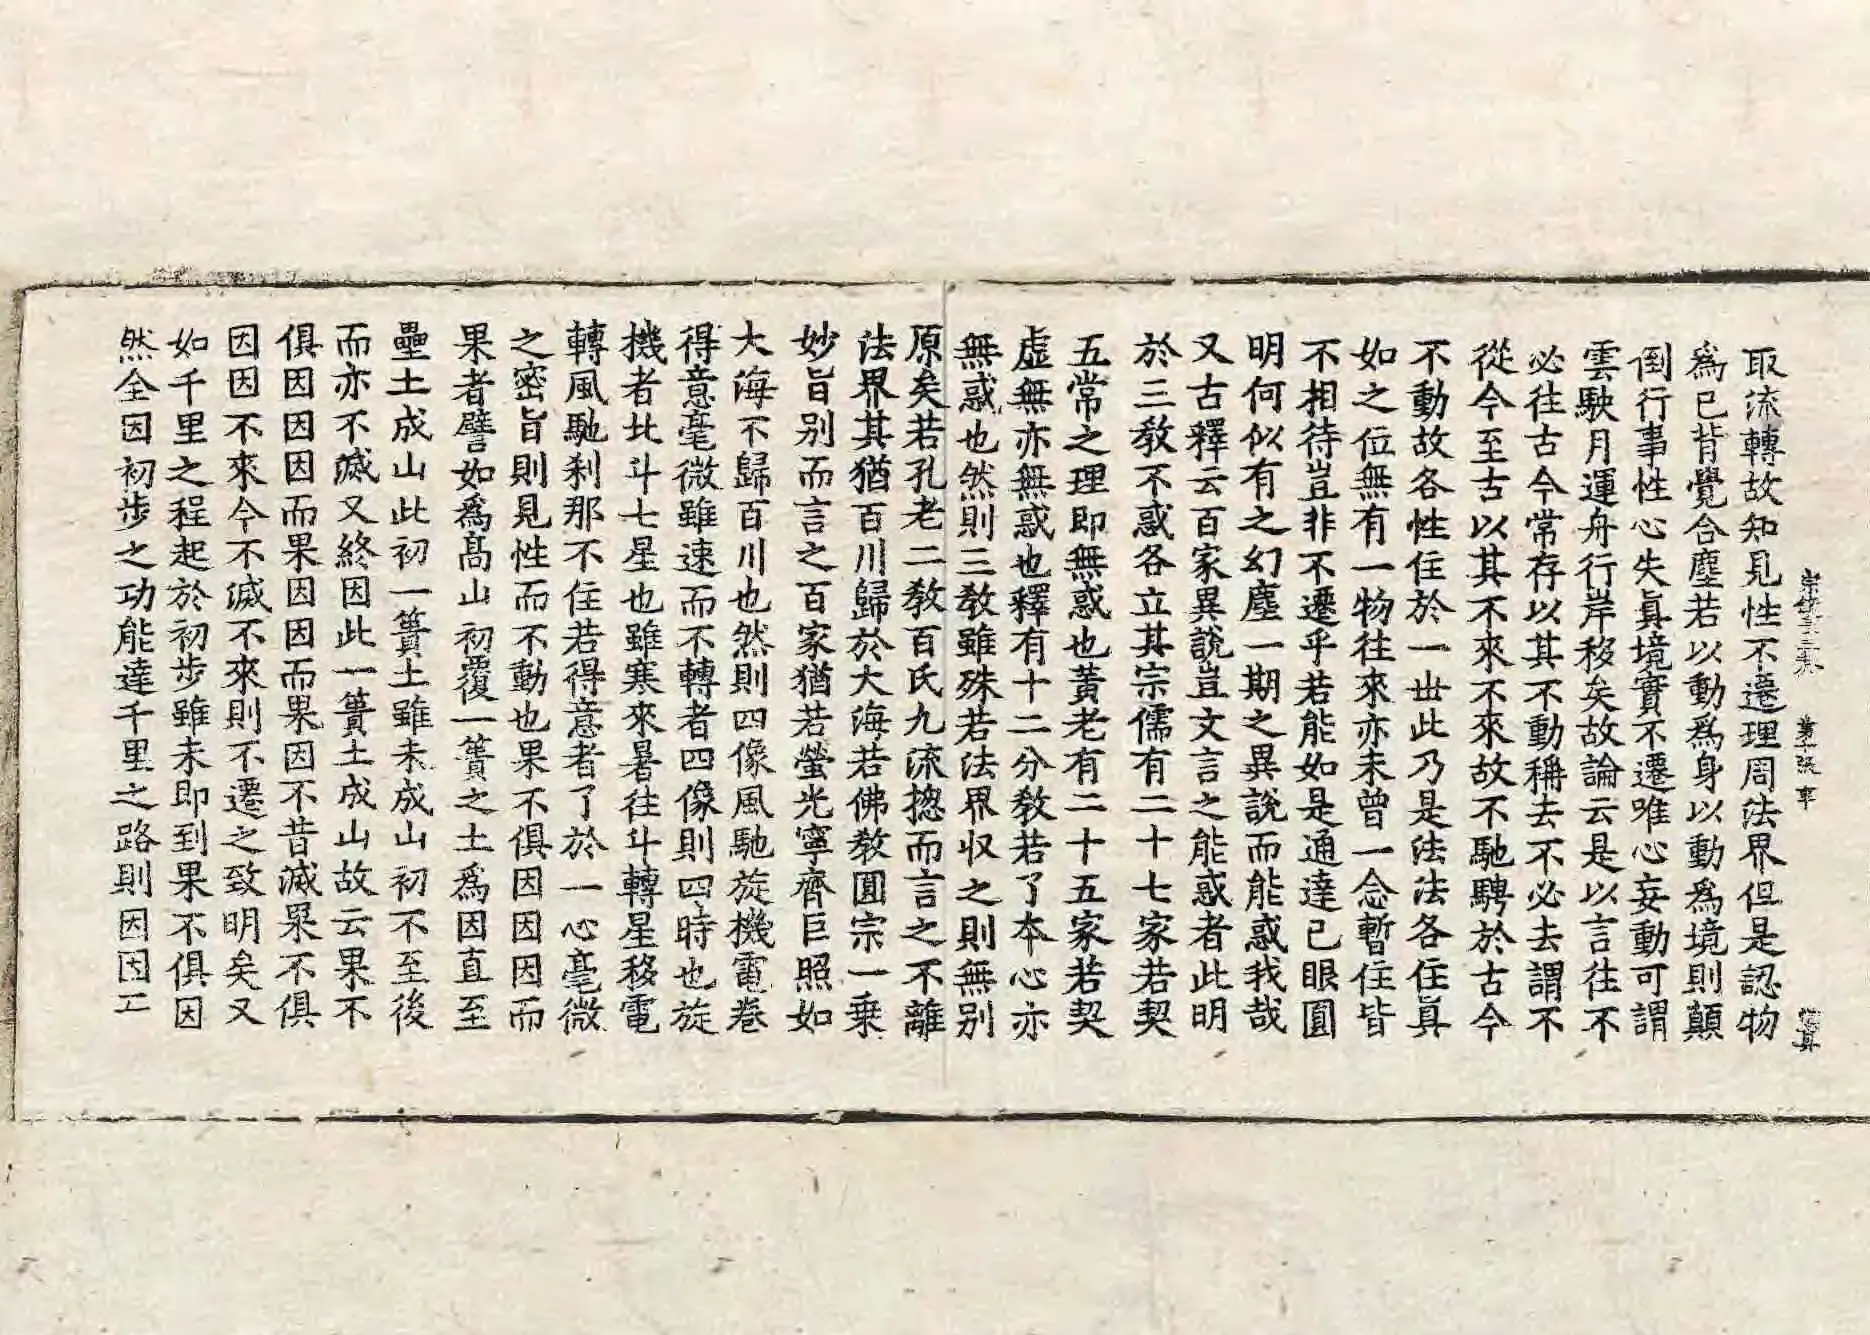 取流轉故知見性不遷理周法界但是認物
爲已背覺合塵若以動爲身以動爲境則顛
倒行事性心失眞境實不遷唯心妄動可謂
雲駛月運舟行岸移矣故論云是以言往不
必往古今常存以其不動稱去不必去謂不
從今至古以其不來不來故不馳騁於古今
不動故各性住於一世此乃是法法各住眞
如之位無有一物往來亦未曾一念暫住皆
不相待豈非不遷乎若能如是通達已眼圓
明何似有之幻塵一期之異說而能惑我哉
又古釋云百家異說豈文言之能惑者此明
於三敎不惑各立其宗儒有二十七家若契
五常之理即無惑也黃老有二十五家若契
虛無亦無惑也釋有十二分敎若了本心亦
無惑也然則三敎雖殊若法界収之則無別
原矣若孔老二敎百氏九流揔而言之不離
法界其猶百川歸於大海若佛敎圓宗一乗
妙旨別而言之百家猶若螢光寧齊巨照如
大海不歸百川也然則四像風馳旋機電卷
得意毫微雖速而不轉者四像則四時也旋
機者北斗七星也雖寒來暑往斗轉星移電
轉風馳刹那不住若得意者了於一心毫微
之密旨則見性而不動也果不俱因因因而
果者譬如爲髙山初覆一簣之土爲因直至
壘土成山此初一簣土雖未成山初不至後
而亦不滅又終因此一簣土成山故云果不
俱因因因而果因因而果因不昔滅果不俱
因因不來今不滅不來則不遷之致明矣又
如千里之程起於初步雖未即到果不俱因
然全因初步之功能達千里之路則因因工